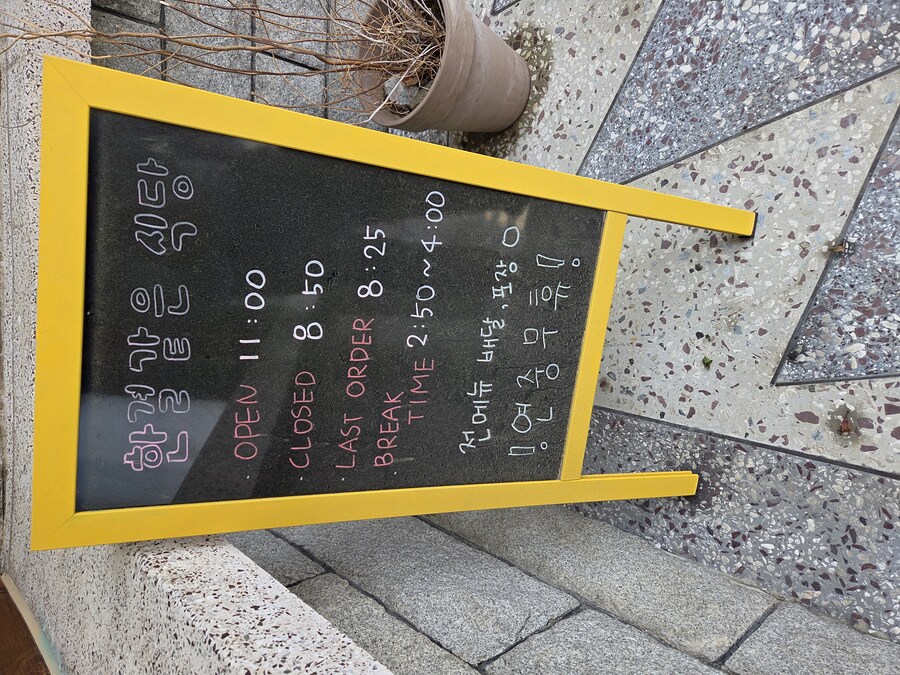 한결같은 식당
· OPEN 11:00
· CLOSED 8:50
· LAST ORDER 8:25
· BREAK
TIME 2:50~4:00
전메뉴 배달, 포장 O
!연중무휴!